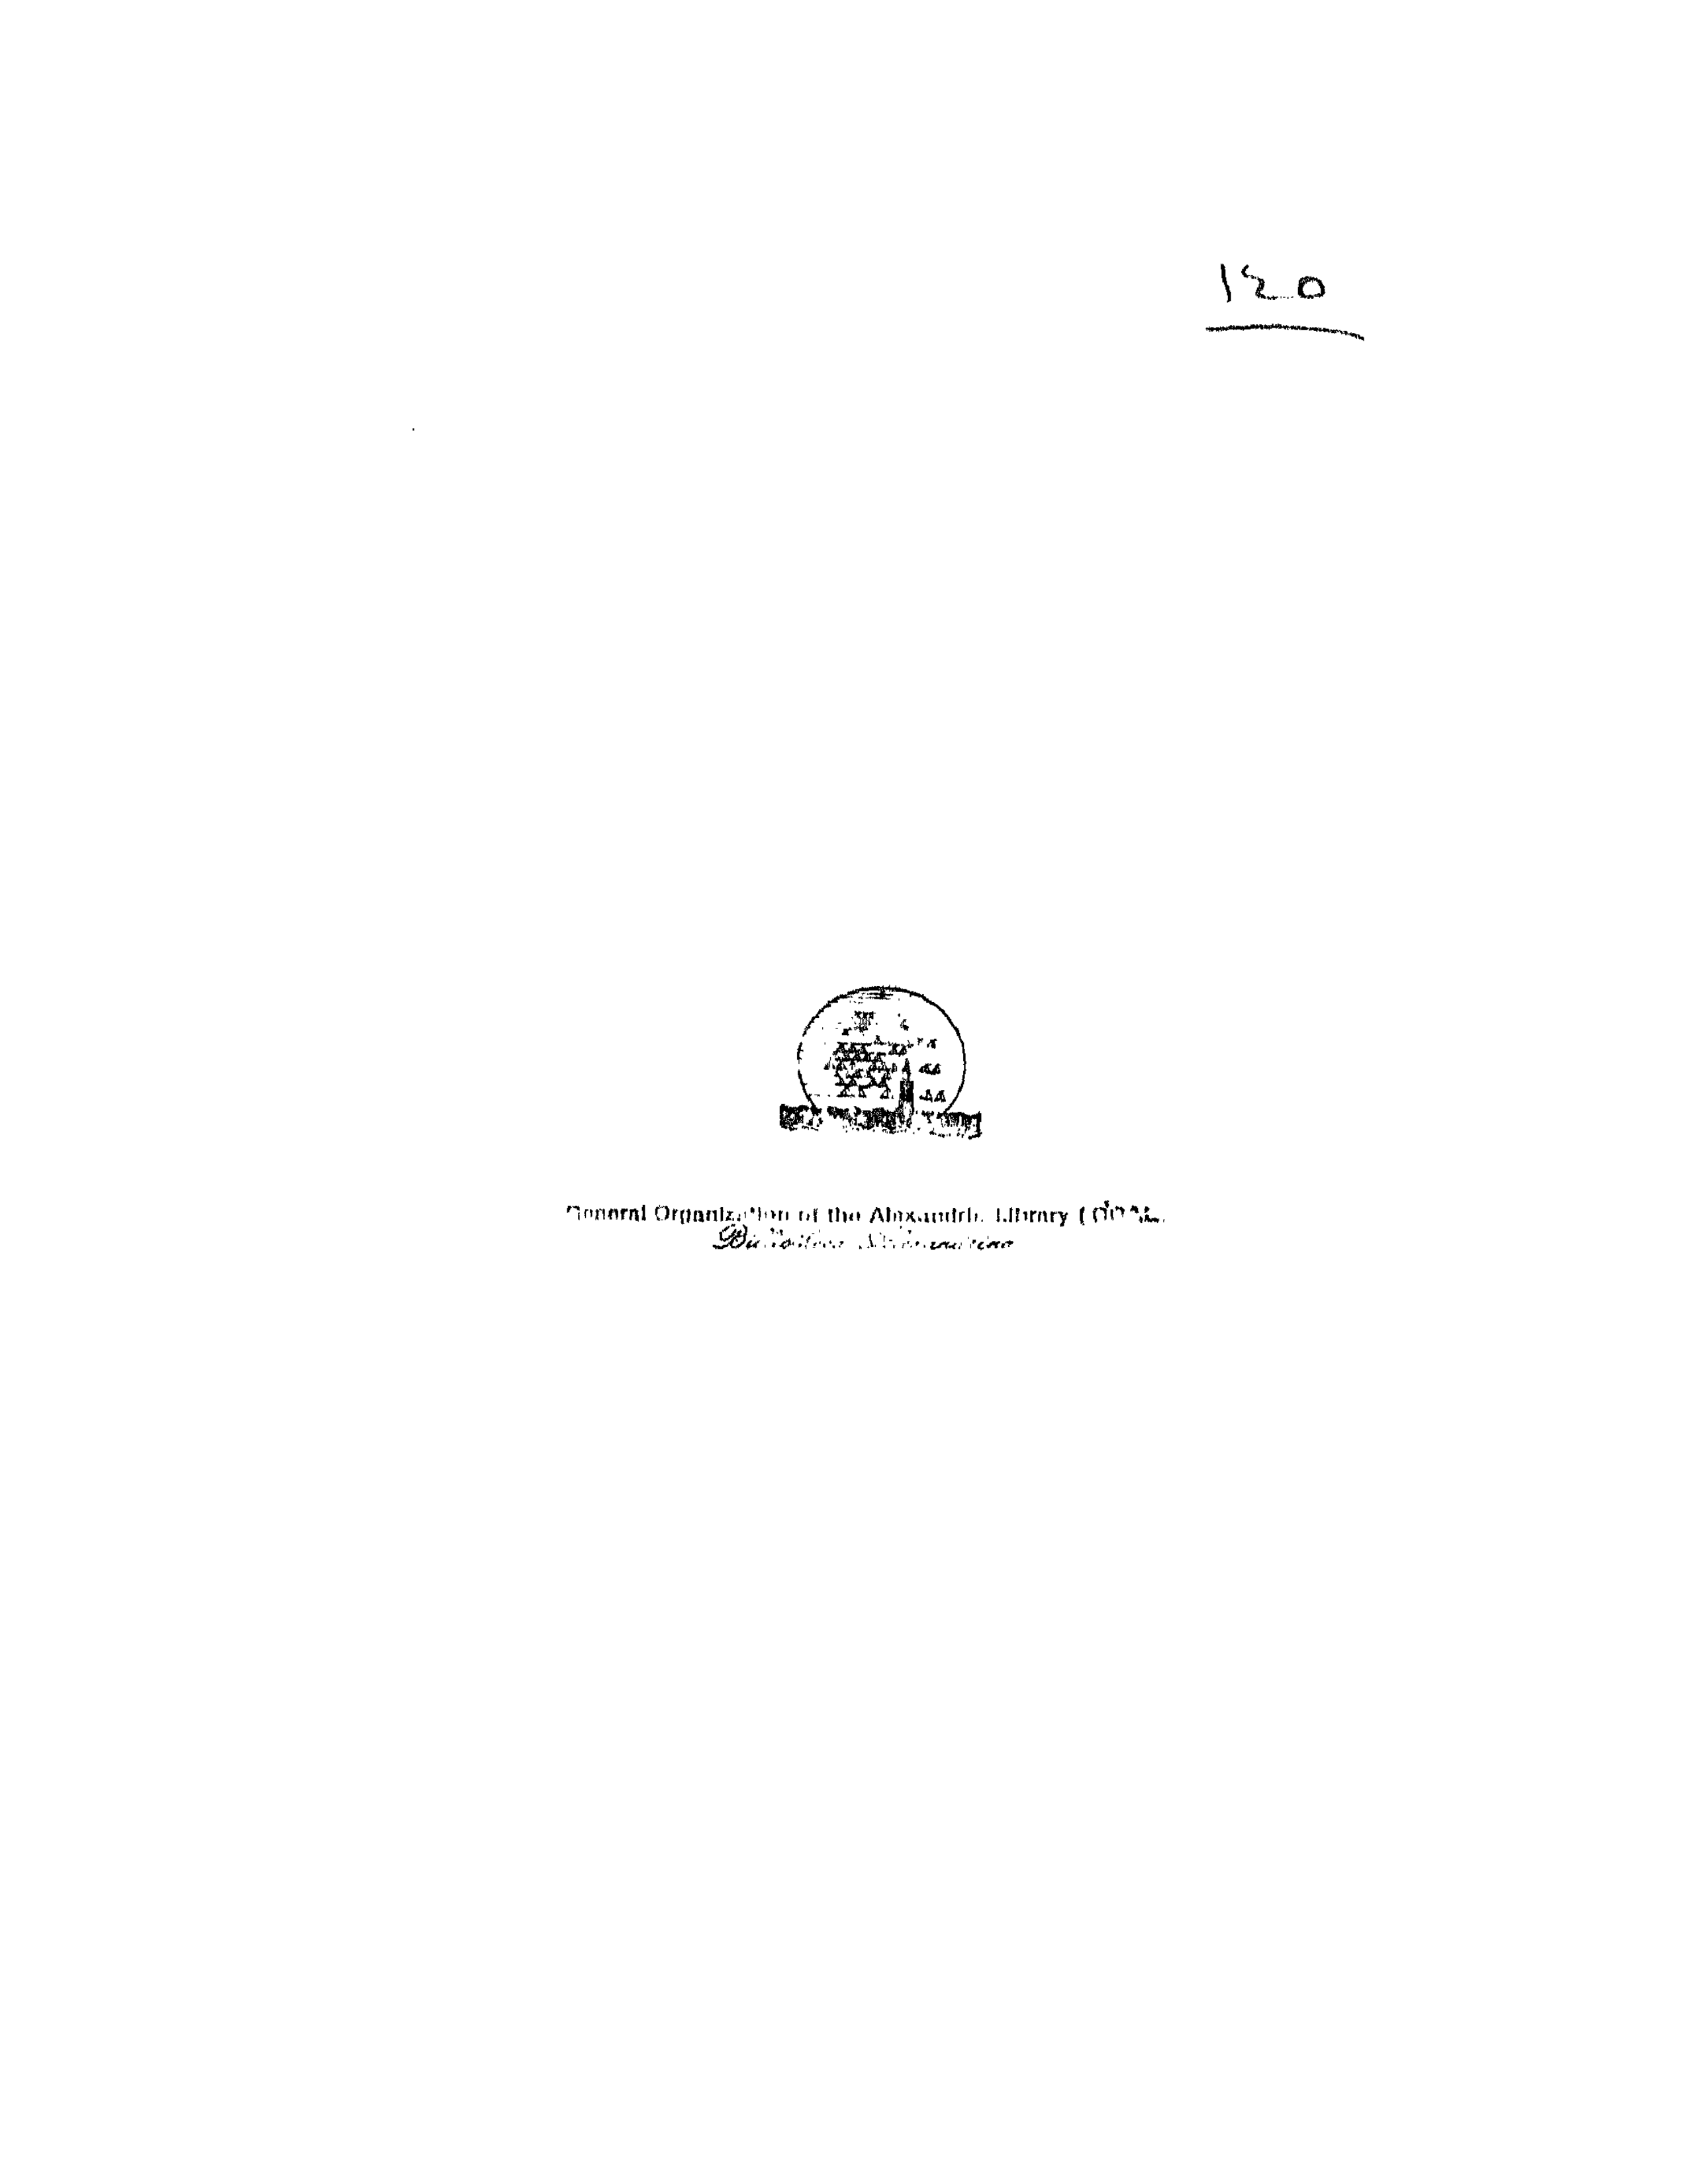 ١٤٥
General Organization of the Alexandria Library (GOAL
Bibliotheca Alexandrina